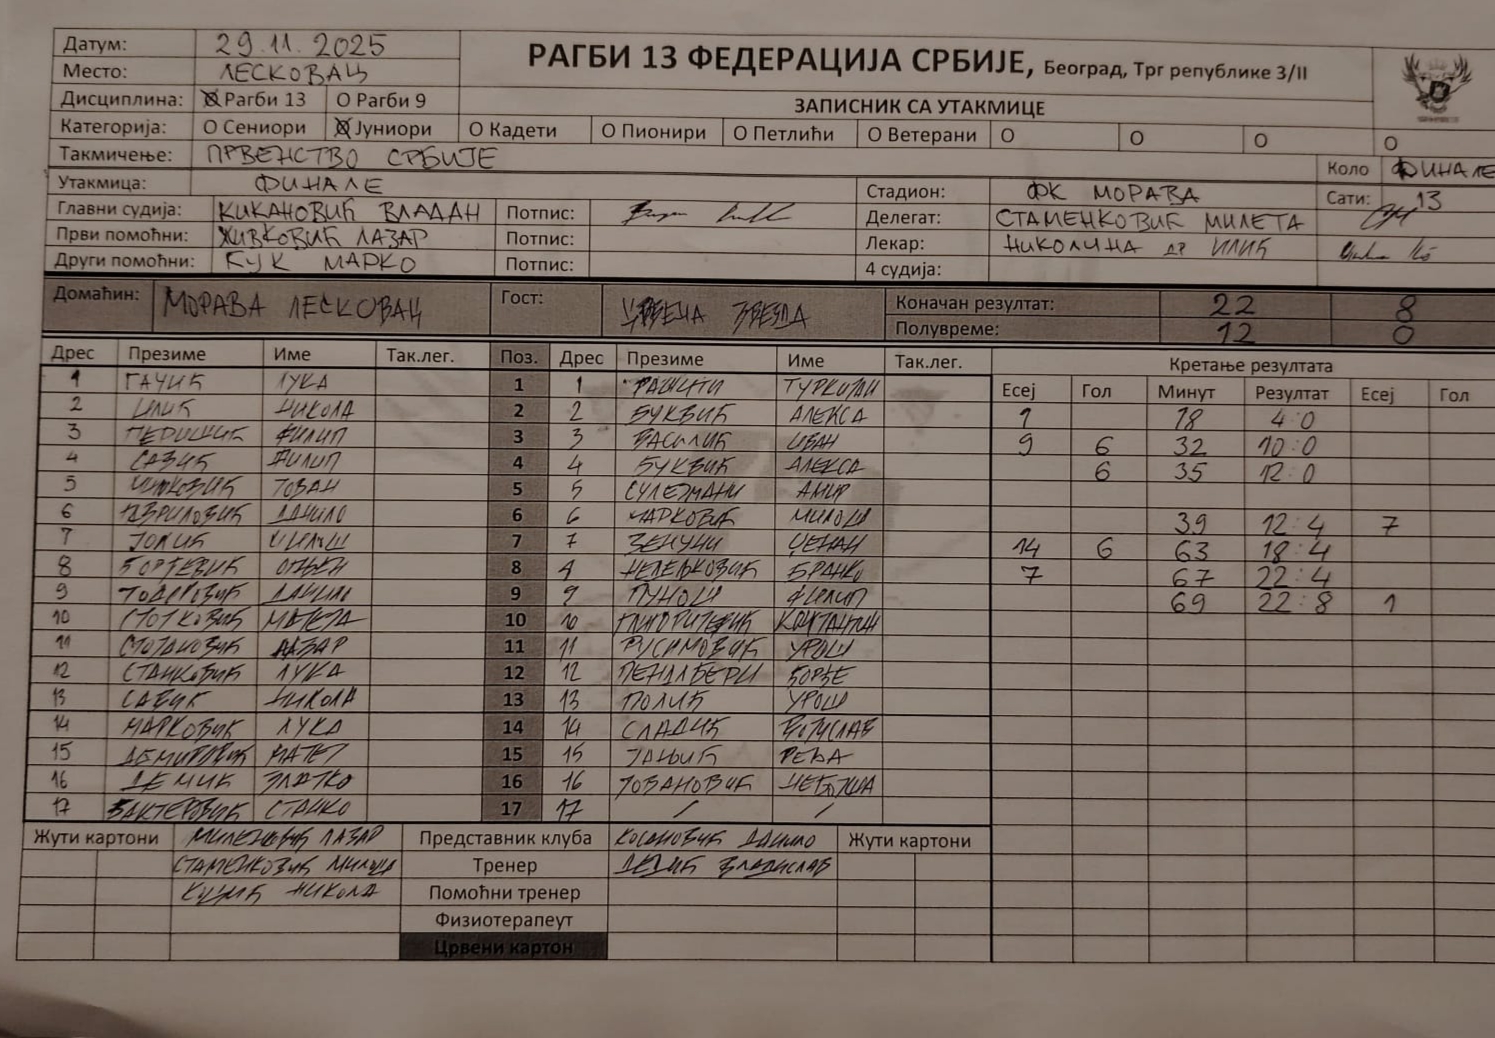 Датум: 29.11.2025
РАГБИ 13 ФЕДЕРАЦИЈА СРБИЈЕ, Београд, Трг републике 3/II
Место: ЛЕСКОВАЦ
Дисциплина: Рагби 13 О Рагби 9
ЗАПИСНИК СА УТАКМИЦЕ
Категорија: О Сениори Јуниори О Кадети О Пионири О Петлићи О Ветерани О О О О
Такмичење: ПРВЕНСТВО СРБИЈЕ Коло ФИНАЛЕ
Утакмица: ФИНАЛЕ Стадион: ФК МОРАВА Сати: 13
Главни судија: КИКАНОВИЋ ВЛАДАН Потпис: Делегат: СТАМЕНКОВИЋ МИЛЕТА
Први помоћни: ЖИВКОВИЋ ЛАЗАР Потпис: Лекар: НИКОЛИНА др ИЛИЋ
Други помоћни: КУК МАРКО Потпис: 4 судија:
Домаћин: МОРАВА ЛЕСКОВАЦ Гост: ЦРВЕНА ЗВЕЗДА Коначан резултат: 22 8
Полувреме: 12 0
Дрес Презиме Име Так.лег. Поз. Дрес Презиме Име Так.лег. Кретање резултата
Есеј Гол Минут Резултат Есеј Гол
1 ГАЧИЋ ЛУКА 1 1
2 ИЛИЋ НИКОЛА 2 2 БУКВИЋ АЛЕКСА 1 18 4:0
3 ПЕРИШИЋ ФИЛИП 3 3 ВАСИЛИЋ ИВАН 9 6 32 10:0
4 САВИЋ ФИЛИП 4 4 БУКВИЋ АЛЕКСА 6 35 12:0
5 ЈОВАН 5 5 СУЛЕЈМАНИ АМИР
6 ГАВРИЛОВИЋ ДАНИЛО 6 6 МАРКОВИЋ МИЛОШ 39 12:4 7
7 ЈОЛИЋ МИЛОШ 7 7 ЗЕНУНИ ЏЕНАН 14 6 63 18:4
8 ЂОРЂЕВИЋ ОГЊЕН 8 НЕДЕЉКОВИЋ БРАНКО 7 67 22:4
9 ТОДОРОВИЋ ДАНИЛО 9 9 ФИЛИП 69 22:8 1
10 СТОЈКОВИЋ МАТЕЈА 10 10 КОНСТАНТИН
11 СТОЈАНОВИЋ ЛАЗАР 11 11 РУСИМОВИЋ УРОШ
12 СТАНКОВИЋ ЛУКА 12 12 ЂОРЂЕ
13 САВИЋ НИКОЛА 13 13 ПОЛИЋ УРОШ
14 МАРКОВИЋ ЛУКА 14 14 СЛАДИЋ ВОЈИСЛАВ
15 ДЕМИРОВИЋ МАТЕЈ 15 15 ЈАЊИЋ РЕЂА
16 ДЕМИЋ ЗЛАТКО 16 16 ЈОВАНОВИЋ НЕБОЈША
17 СТАНКО 17 17 / /
Жути картони МИЛЕНОВИЋ ЛАЗАР Представник клуба КОСАНОВИЋ ДАНИЛО Жути картони
СТАМЕНКОВИЋ МИЛОШ Тренер ДЕДИЋ ВЛАДИСЛАВ
НИКОЛА Помоћни тренер
Физиотерапеут
Црвени картон